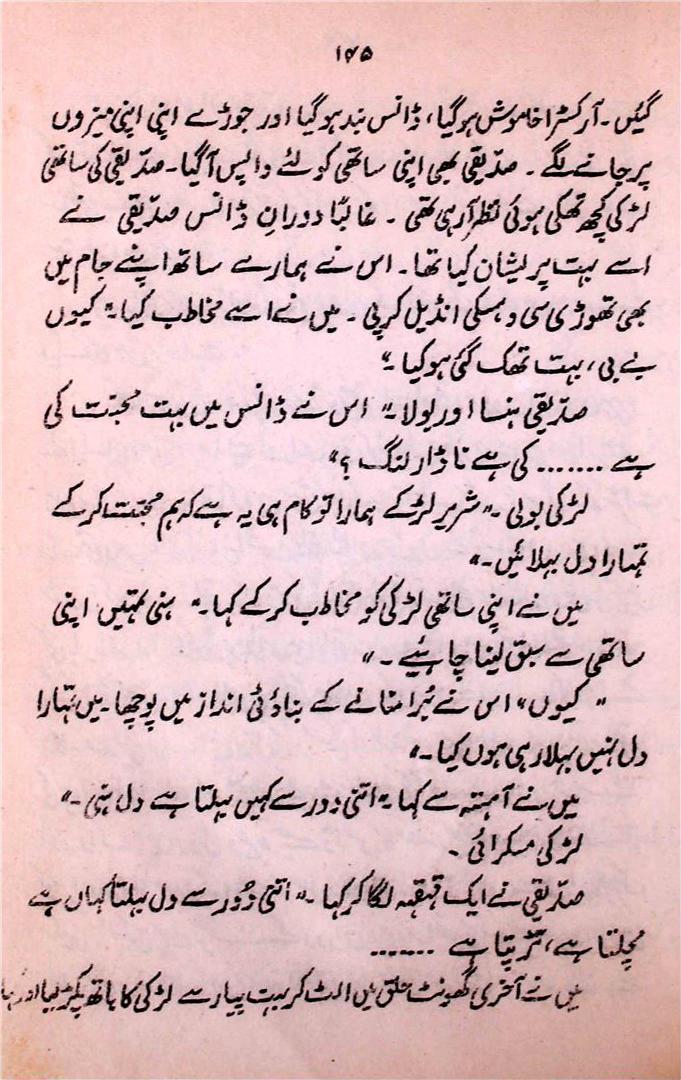 ۱۴۵
گئیں۔ آرکسٹرا خاموش ہوگیا، ڈانس بند ہوگیا اور جوڑے اپنی اپنی میزوں
پر جانے لگے۔ صدّیقی بھی اپنی ساتھی کو لئے واپس آگیا۔ صدّیقی کی ساتھی
لڑکی کچھ تھکی ہوئی نظر آرہی تھی۔ غالباً دورانِ ڈانس صدّیقی نے
اسے بہت پریشان کیا تھا۔ اس نے ہمارے ساتھ اپنے جام میں
بھی تھوڑی سی وہسکی انڈیل کر پی۔ میں نے اسے مخاطب کیا۔ "کیوں
بے بی، بہت تھک گئی ہو کیا۔"
صدّیقی ہنسا اور بولا۔ "اس نے ڈانس میں بہت محبّت کی
ہے ....... کی ہے نا ڈارلنگ؟"
لڑکی بولی۔ "شریر لڑکے ہمارا تو کام ہی یہ ہے کہ ہم محبّت کرکے
تمہارا دل بہلائیں۔"
میں نے اپنی ساتھی لڑکی کو مخاطب کرکے کہا۔ "ہنی تمہیں اپنی
ساتھی سے سبق لینا چاہئیے۔"
"کیوں" اس نے بُرا منانے کے بناؤٹی انداز میں پوچھا۔ میں تمہارا
دل نہیں بہلا رہی ہوں کیا۔"
میں نے آہستہ سے کہا۔ "اتنی دور سے کہیں بہلتا ہے دل ہنی۔"
لڑکی مسکرائی۔
صدّیقی نے ایک قہقہہ لگا کر کہا۔ "اتنی دُور سے دل بہلتا کہاں ہے
مچلتا ہے، تڑپتا ہے .......
میں نے آخری گھونٹ حلق میں الٹ کر بہت پیار سے لڑکی کا ہاتھ پکڑ لیا اور